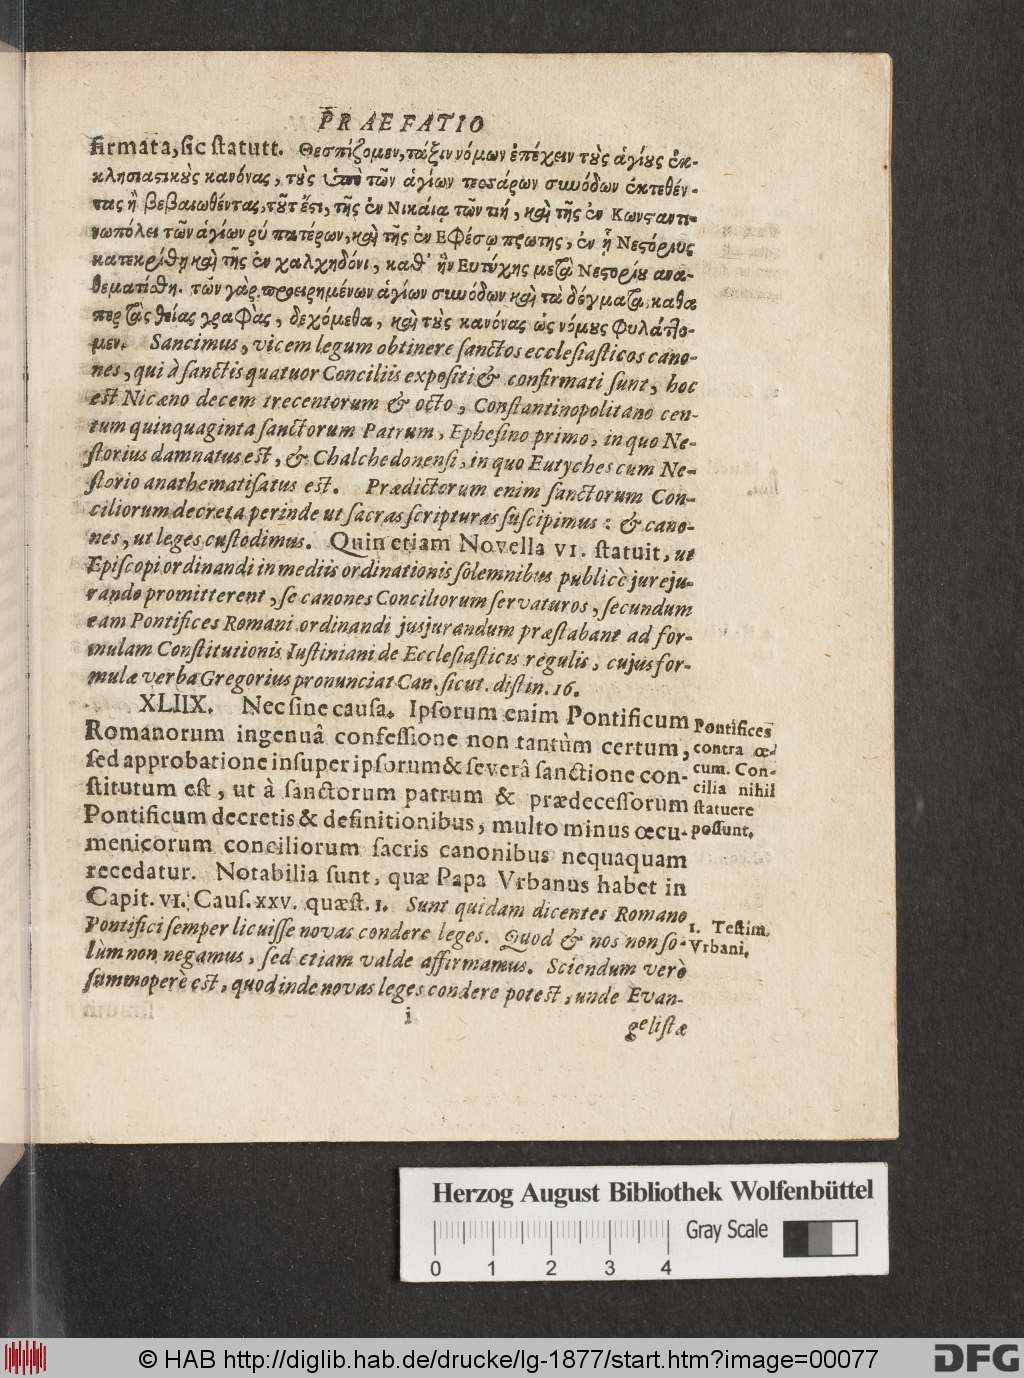 PRAEFATIO
firmata, sic statutt. Θεσπίζομεν, τάξιν νόμων ἐπέχειν τοὺς ἁγίους ἐκ-
κλησιαστικοὺς κανόνας, τοὺς ὑπὸ τῶν ἁγίων τεσσάρων συνόδων ἐκτεθέν-
τας ἢ βεβαιωθέντας, τοῦτ' ἔστι, τῆς ἐν Νικαίᾳ τῶν τιή, καὶ τῆς ἐν Κωνσταντι-
νωπόλει τῶν ἁγίων ρν πατέρων, καὶ τῆς ἐν Εφέσῳ πρώτης, ἐν ᾗ Νεστόριος
κατεκρίθη καὶ τῆς ἐν χαλχηδόνι, καθ' ἣν Ευτύχης μετὰ Νεστορίου ανα-
θεματίσθη. τῶν γὰρ προειρημένων ἁγίων συνόδων καὶ τὰ δόγματα, καθα
περ τὰς θείας γραφὰς, δεχόμεθα, καὶ τοὺς κανόνας ὡς νόμους φυλάττο-
μεν. Sancimus, vicem legum obtinere sanctos ecclesiasticos cano-
nes, qui à sanctis quatuor Conciliis expositi & confirmati sunt, hoc
est Nicæno decem trecentorum & octo, Constantinopolitano cen-
tum quinquaginta sanctorum Patrum, Ephesino primo, in quo Ne-
storius damnatus est, & Chalchedonensi, in quo Eutyches cum Ne-
storio anathematisatus est. Prædictorum enim sanctorum Con-
ciliorum decreta perinde ut sacras scripturas suscipimus : & cano-
nes, ut leges custodimus. Quin etiam Novella VI. statuit, ut
Episcopi ordinandi in mediis ordinationis solemnibus publicè jureju-
rando promitterent, se canones Conciliorum servaturos, secundum
eam Pontifices Romani ordinandi jusjurandum præstabant ad for-
mulam Constitutionis Iustiniani de Ecclesiasticis regulis, cujus for-
mulæ verba Gregorius pronunciat Can. sicut. distin. 16.
XLIIX. Nec sine causa. Ipsorum enim Pontificum
Romanorum ingenuâ confessione non tantùm certum,
sed approbatione insuper ipsorum & severâ sanctione con-
stitutum est, ut à sanctorum patrum & prædecessorum
Pontificum decretis & definitionibus, multo minus œcu-
menicorum conciliorum sacris canonibus nequaquam
recedatur. Notabilia sunt, quæ Papa Vrbanus habet in
Capit. VI. Caus. XXV. quæst. 1. Sunt quidam dicentes Romano
Pontifici semper licuisse novas condere leges. Quod & nos non so-
lùm non negamus, sed etiam valde affirmamus. Sciendum verò
summoperè est, quod inde novas leges condere potest, unde Evan-
i
gelistæ
Pontifices
contra œ-
cum. Con-
cilia nihil
statuere
possunt.
1. Testim.
Vrbani.
Herzog August Bibliothek Wolfenbüttel
Gray Scale
0 1 2 3 4
© HAB http://diglib.hab.de/drucke/lg-1877/start.htm?image=00077
DFG